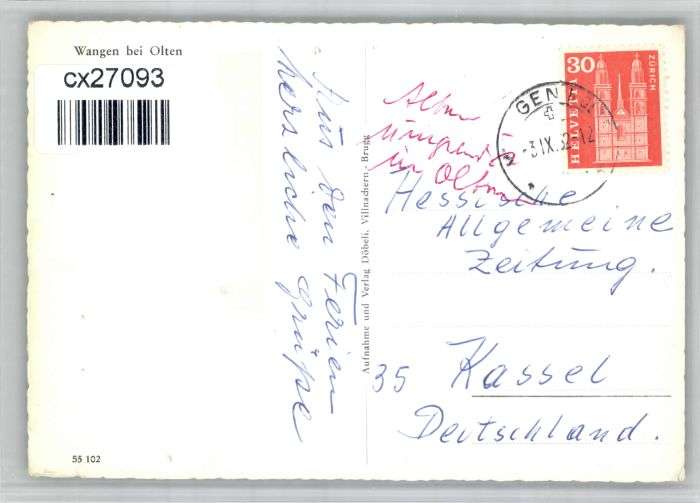 Wangen bei Olten
cx27093
Aus den Ferien
herzliche Grüße
55 102
Aufnahme und Verlag Döbeli, Villnachern-Brugg
30
HELVETIA
ZÜRICH
GEN
-3.IX.62-12
in Olten
Hessische
Allgemeine
Zeitung.
35 Kassel
Deutschland.